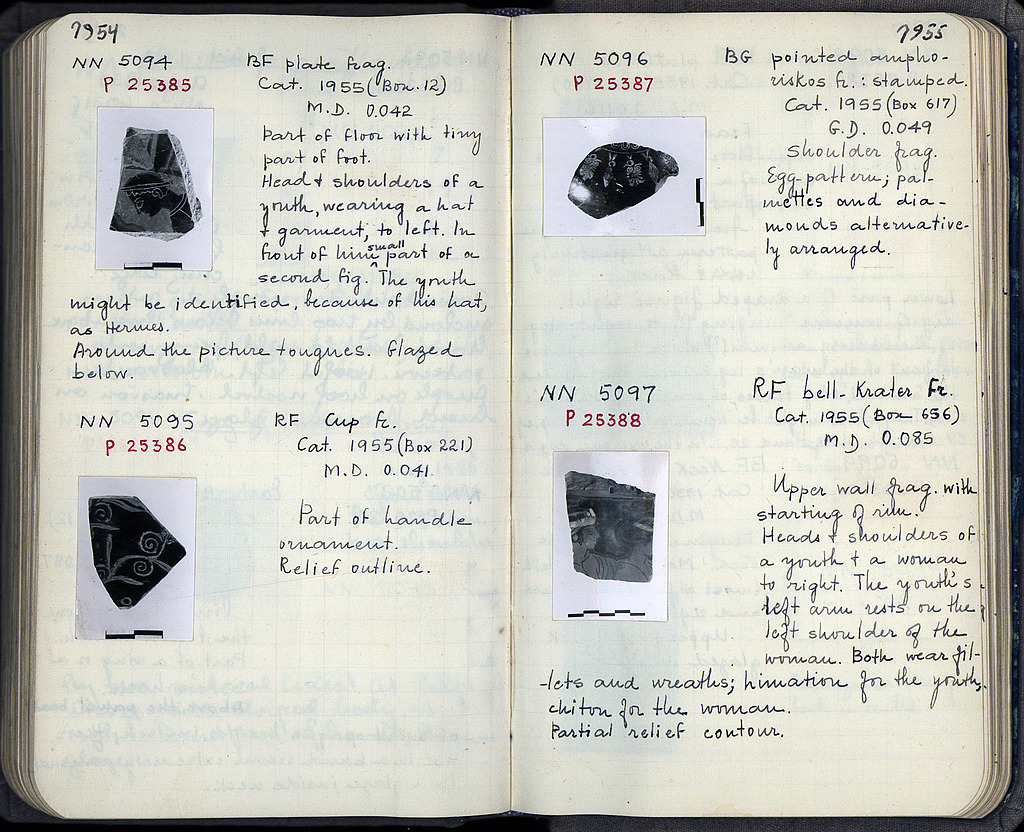 7954
NN 5094 BF plate frag.
P 25385 Cat. 1955 (Box 12)
M.D. 0.042
Part of floor with tiny
part of foot.
Head & shoulders of a
youth, wearing a hat
& garment, to left. In
front of him small part of a
second fig. The youth
might be identified, because of his hat,
as Hermes.
Around the picture tongues. Glazed
below.
NN 5095 RF Cup fr.
P 25386 Cat. 1955 (Box 221)
M.D. 0.041
Part of handle
ornament.
Relief outline.
7955
NN 5096 BG pointed ampho-
P 25387 riskos fr.: stamped.
Cat. 1955 (Box 617)
G.D. 0.049
Shoulder frag.
Egg-pattern; pal-
mettes and dia-
monds alternative-
ly arranged.
NN 5097 RF bell-Krater Fr.
P 25388 Cat. 1955 (Box 656)
M.D. 0.085
Upper wall frag. with
starting of rim.
Heads & shoulders of
a youth & a woman
to right. The youth's
left arm rests on the
left shoulder of the
woman. Both wear fil-
-lets and wreaths; himation for the youth,
chiton for the woman.
Partial relief contour.